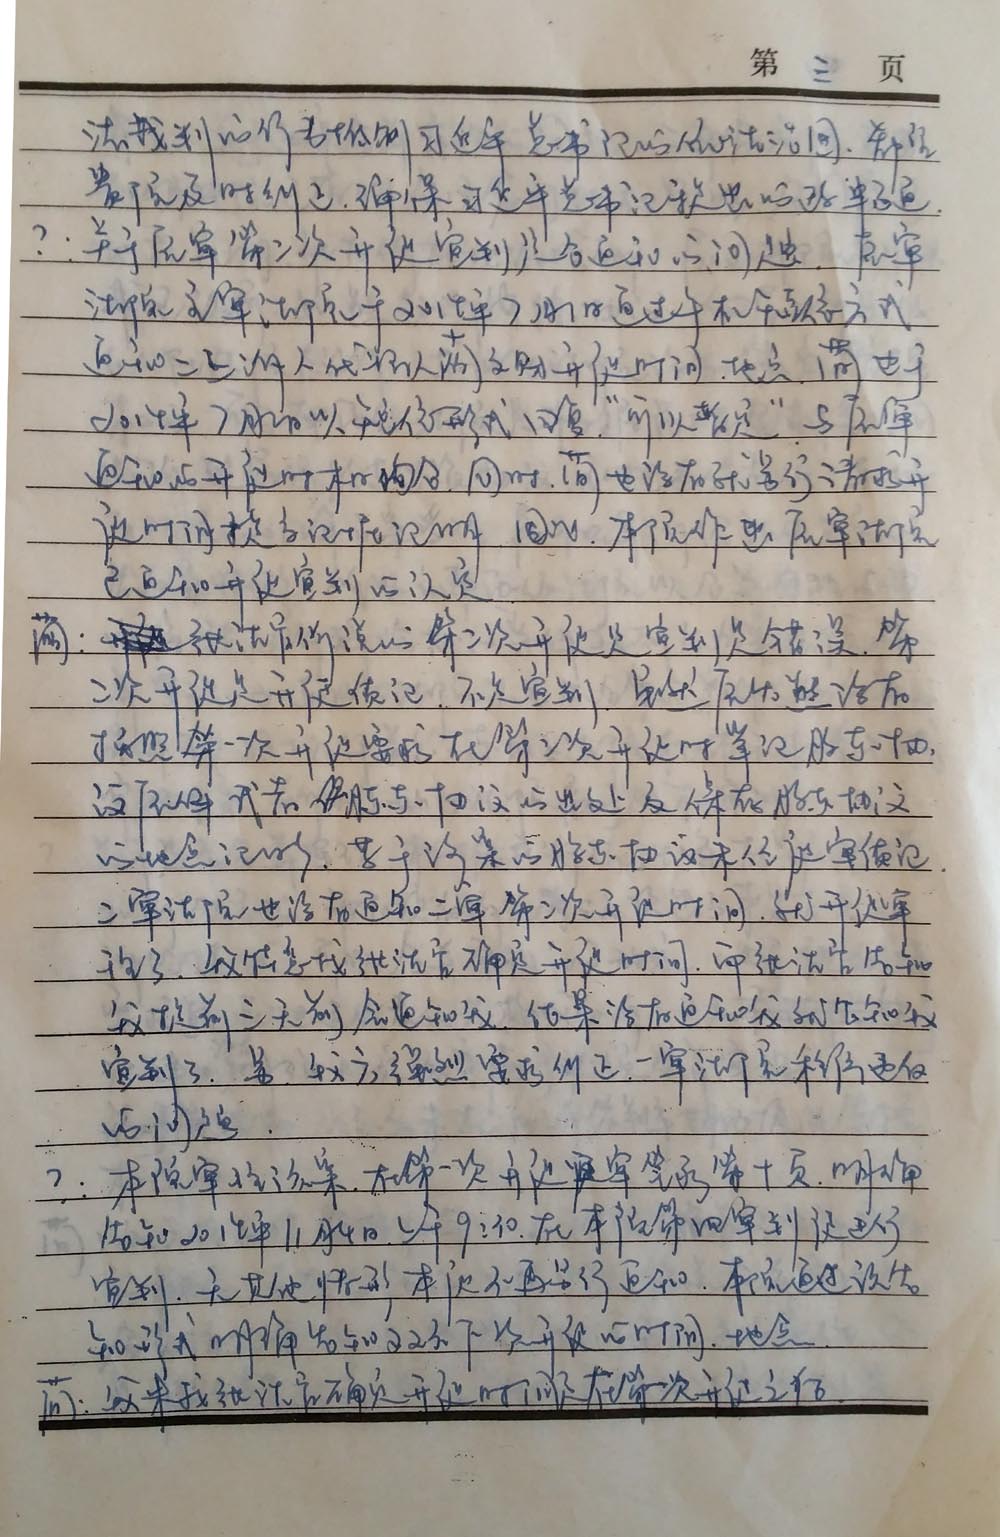 第 三 页
法裁判的行为抵制习近平总书记的依法治国.希望
贵院及时纠正.确保习近平总书记提出的政策畅通.
?: 关于原审第二次开庭宣判是否通知的问题. 原审
法院审法院于2015年7月 日通过手机短信方式
通知二上诉人代理人简文财开庭时间.地点.简也于
2015年7月 日以短信形式回复“可以暂定”.与原审
通知的开庭时 相吻合.同时.简也没有就另行请求开
庭时间提交记录证明.因此.本院作出原审法院
已通知开庭宣判的认定
简: 张法官所说的第二次开庭是宣判是错误.第
二次开庭是开庭质证.不是宣判.虽然原告没有
按照第一次开庭要求在第二次开庭时 股东协
议原件或者 股东协议的出处及保存股东协议
的地点证明.基于该案的股东协议未经庭审质证.
二审法院也没有通知二审第二次开庭时间.就开庭审
理了.我特意找张法官确定开庭时间.而张法官告知
我提前三天前会通知我.结果没有通知我就告知我
宣判了. 我方强烈要求纠正.一审法院程序违反
的问题.
?: 本院审理该案.在第一次开庭庭审笔录第十页.明确
告知2015年11月4日上午9:30.在本院第四审判庭进行
宣判.无其他情形本院不再另行通知.本院通过该告
知形式明确告知双方下次开庭的时间.地点.
简: 我来找张法官确定开庭时间是在第一次开庭之后